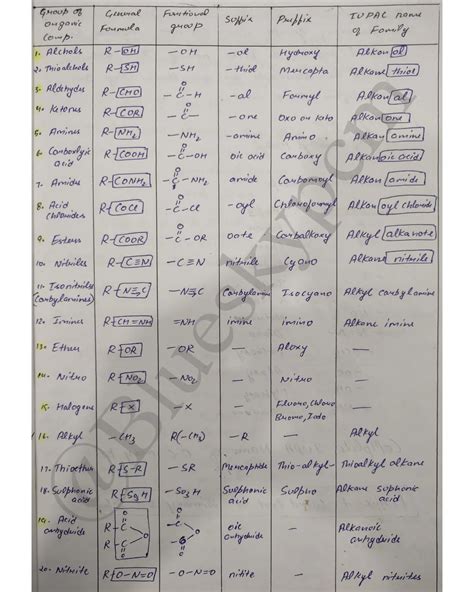 Group of organic Comp. General Formula Functional group Suffix Prefix IUPAC name of Family
1. Alcohols R-OH -OH -ol Hydroxy Alkanol
2. Thioalcohols R-SH -SH -thiol Mercapto Alkane thiol
3. Aldehydes R-CHO O=C-H -al Formyl Alkanal
4. Ketones R-COR O=C- -one Oxo Alkanone
5. Amines R-NH2 -NH2 -amine Amino Alkanamine
6. Carboxylic acid R-COOH O=C-OH oic acid Carboxy Alkanoic acid
7. Amide R-CONH2 O=C-NH2 amide Carbamoyl Alkanamide
8. Acid Chlorides R-COCl O=C-Cl -oyl Chloroformyl Alkanoyl chloride
9. Esters R-COOR O=C-OR oate Carbalkoxy Alkyl alkanoate
10. Nitriles R-C≡N -C≡N nitrile Cyano Alkane nitrile
11. Isonitriles (Carbylamines) R-N≡C -N≡C Carbylamine Isocyano Alkyl carbylamine
12. Imines R-CH=NH =NH imine imino Alkane imine
13. Ether R-OR -OR — Aloxy —
14. Nitro R-NO2 -NO2 — Nitro —
15. Halogens R-X -X — Fluoro, Chloro Bromo, Iodo —
16. Alkyl -CH3 R(-CH3) -R — Alkyl
17. Thioether R-S-R -SR Thio-alkyl- Thioalkyl alkane
18. Sulphonic acid R-SO3H -SO3H Sulphonic acid Sulpho Alkane suphonic acid
19. Acid anhydride oic anhydride — Alkanoic anhydride
20. Nitrite R-O-N=O -O-N=O nitite — Alkyl nitrites
@Blueskypcm